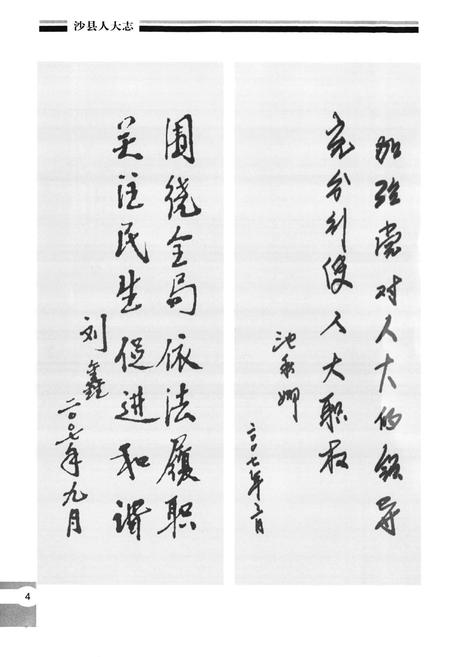 沙县人大志
加强党对人大的领导
充分行使人大职权
池秀娜
二〇〇七年三月
围绕全局依法履职
关注民生促进和谐
刘鑫
二〇〇七年九月
4